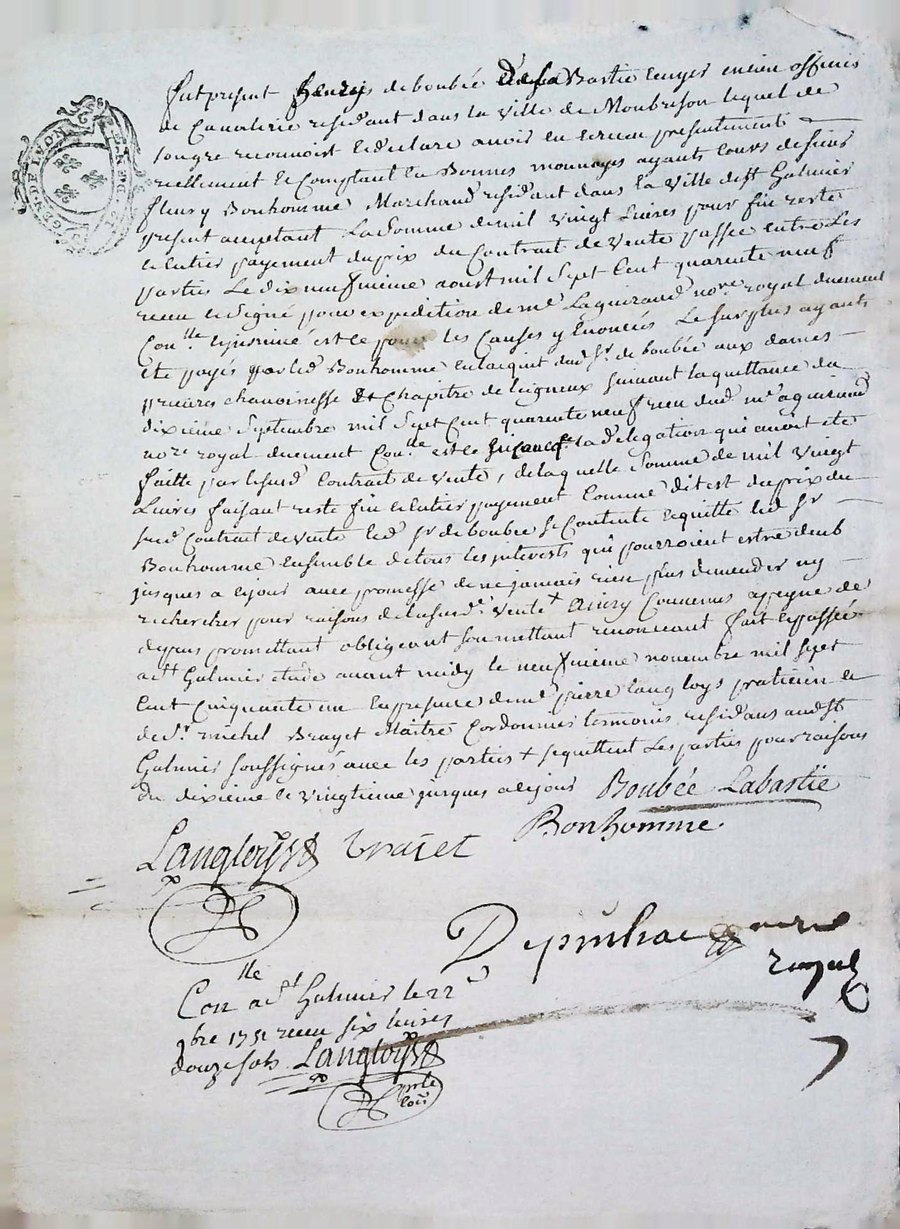 GEN. DE LYON
fut present henry de boubée de la Bastie ancien officier
de Cavalerie residant dans la ville de Montbrison lequel de
son gre reconnoist et declare avoir eu et receu presentement
reellement et Comptant en Bonnes monnoyes ayants cours de sieur
fleury Bonhomme Marchand residant dans la ville de st Galmier
present acceptant La somme de mil vingt Livres pour fin reste
et entier payement du prix du Contrat de vente passée entre Les
parties Le dix neufvieme aoust mil sept Cent quarente neuf
receu et signé pour expedition de me Laguiraud nore royal duement
Conlle et insinué est ce pour les Causes y Enoncées Le surplus ayants
été payés par led Bonhomme en lacquit dud sr. de boubée aux dames
prieures chanoinesse Et Chapitre de leigneux suivant la quittance du
dixieme septembre mil sept Cent quarente neuf receu dud me Laguiraud
nore royal duement Conlle est ce suivant la delegation qui avoit eté
faitte par le susd Contrat de vente, de laquelle somme de mil vingt
Livres faisant reste fin et entier payement Comme dit est du prix du
sud Contrat de vente led sr de boubée se Contente et quitte led sr
Bonhomme Ensemble de tous les interests qui pourroient estre deub
jusques a ce jour avec promesse de ne jamais rien plus demander ny
rechercher pour raisons de la susd. vente + Ainsy Convenus a peyne de
depens promettant obligeant soumettant renonceant fait et passée
a st Galmier etude avant midy le neufvieme novembre mil sept
Cent Cinquante un En presence de me pierre langloys praticien et
de sr. michel Brayet Maitre Cordonnier temoins residans aud st
Galmier soussignés avec les parties + se quittent Les parties pour raisons
du dixieme et vingtieme jusques a ce jour Boubée Labastie
Bonhomme
Langloys brajet
Depinhac nore
royal
Conlle a st Galmier le 22
9bre 1751 receu six livres
douze sols Langloys